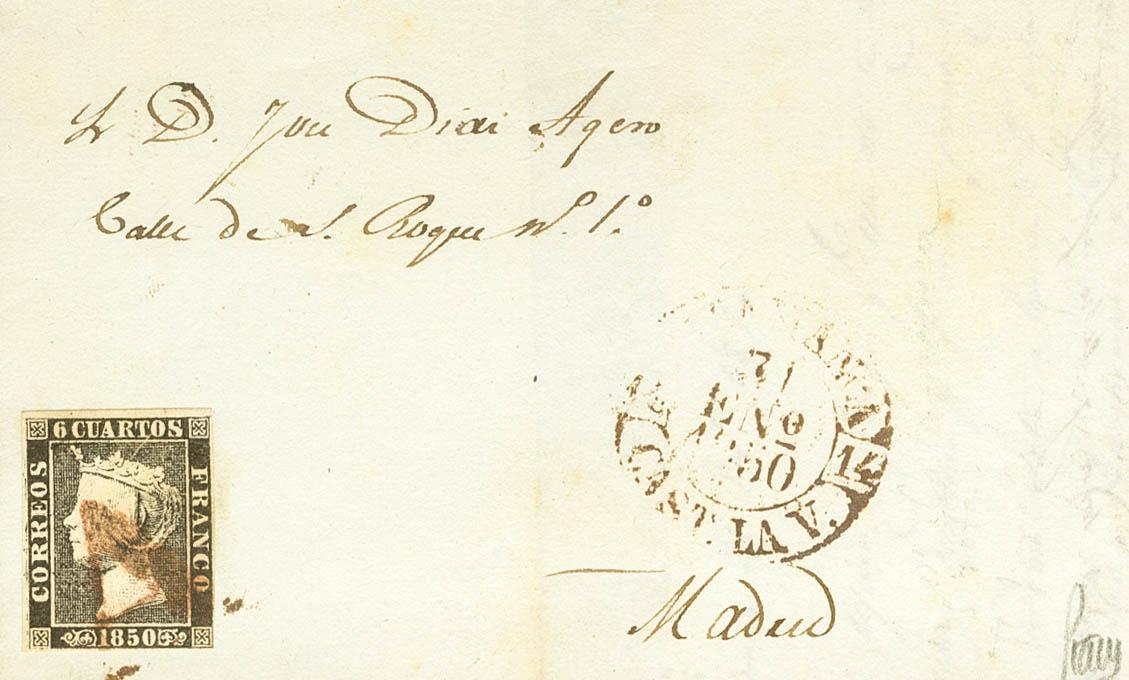 Sr D. José Diaz Agero
Calle de S. Roque nº. 1.º
31
ENO
1850
CAST. LA V. 14
6 CUARTOS
CORREOS
FRANCO
1850
Madrid